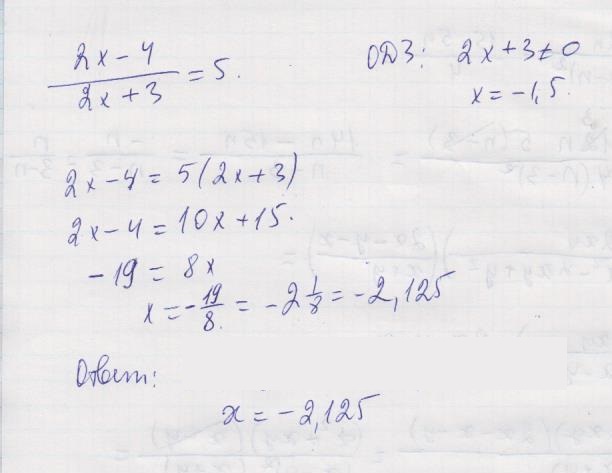 (2x-4)/(2x+3) = 5.
ОДЗ: 2x+3≠0
x=-1,5.
2x-4 = 5(2x+3)
2x-4 = 10x+15.
-19 = 8x
x = -19/8 = -2 1/8 = -2,125
Ответ:
x = -2,125